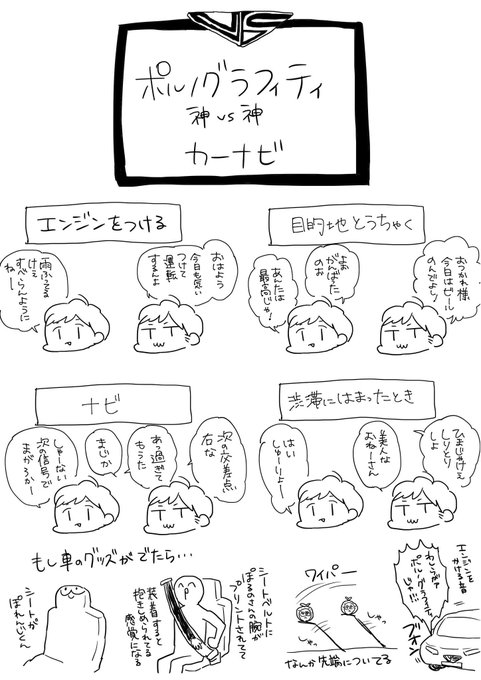 VS
ポルノグラフィティ
神 vs 神
カーナビ
エンジンをつける
おはよう
今日も気い
つけて
運転
するんよ
雨ふってる
けぇ
すべらんように
ねー
目的地とうちゃく
おつかれ様
今日はビール
のんでよし!
よお
がんばた
のお
あんたは
最高じゃ!
ナビ
次の交差点
右な
あっ過ぎて
もうた
まじか
しゃーない
次の信号で
まがろかー
渋滞にはまったとき
ひまじゃけぇ
しりとり
しよ
美人な
おねーさん
はい
しゅーりょー
もし車のグッズがでたら…
シートが
ぽれんいどん
シートベルトに
ぽるのさんの腕が
プリントされてて
装着すると
抱きしめられてる
感覚になる
ワイパー
しゅっ
しゅっ
なんか先端についてる
エンジンを
かける音
わしらがァ
ポルノグラフィティ
じゃ!!
ブォン